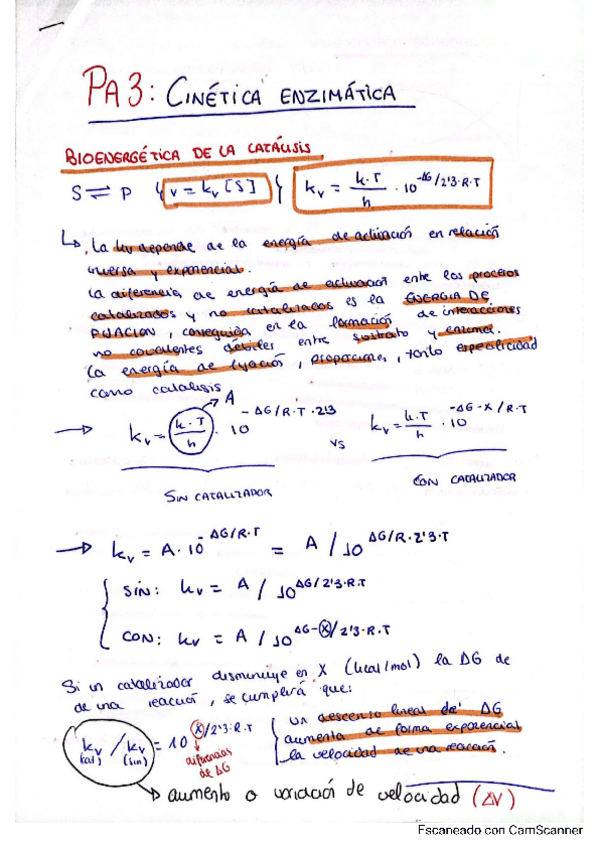 PA3: CINÉTICA ENZIMÁTICA
BIOENERGÉTICA DE LA CATÁLISIS
S ⇌ P { v = kv [S] } { kv = k·T/h · 10^-ΔG/2'3·R·T
↳ La kv depende de la energía de activación en relación
inversa y exponencial.
La diferencia de energía de activación entre los procesos
catalizados y no catalizados es la ENERGÍA DE
FIJACIÓN, conseguida en la formación de interacciones
no covalentes débiles entre sustrato y enzima.
La energía de fijación, proporciona, tanto especificidad
como catálisis
→ kv = (k·T/h) · 10^-ΔG/R·T·2'3 vs kv = k·T/h · 10^-ΔG-X/R·T
A
SIN CATALIZADOR
CON CATALIZADOR
→ kv = A·10^-ΔG/R·T = A / 10^ΔG/R·2'3·T
SIN: kv = A / 10^ΔG/2'3·R·T
CON: kv = A / 10^ΔG-X/2'3·R·T
Si un catalizador disminuye en X (kcal/mol) la ΔG de
de una reacción, se cumplirá que:
kv (cat) / kv (sin) = 10^X/2'3·R·T
diferencias de ΔG
un descenso lineal de ΔG
aumenta de forma exponencial
la velocidad de una reacción.
→ aumento o variación de velocidad (ΔV)
Escaneado con CamScanner